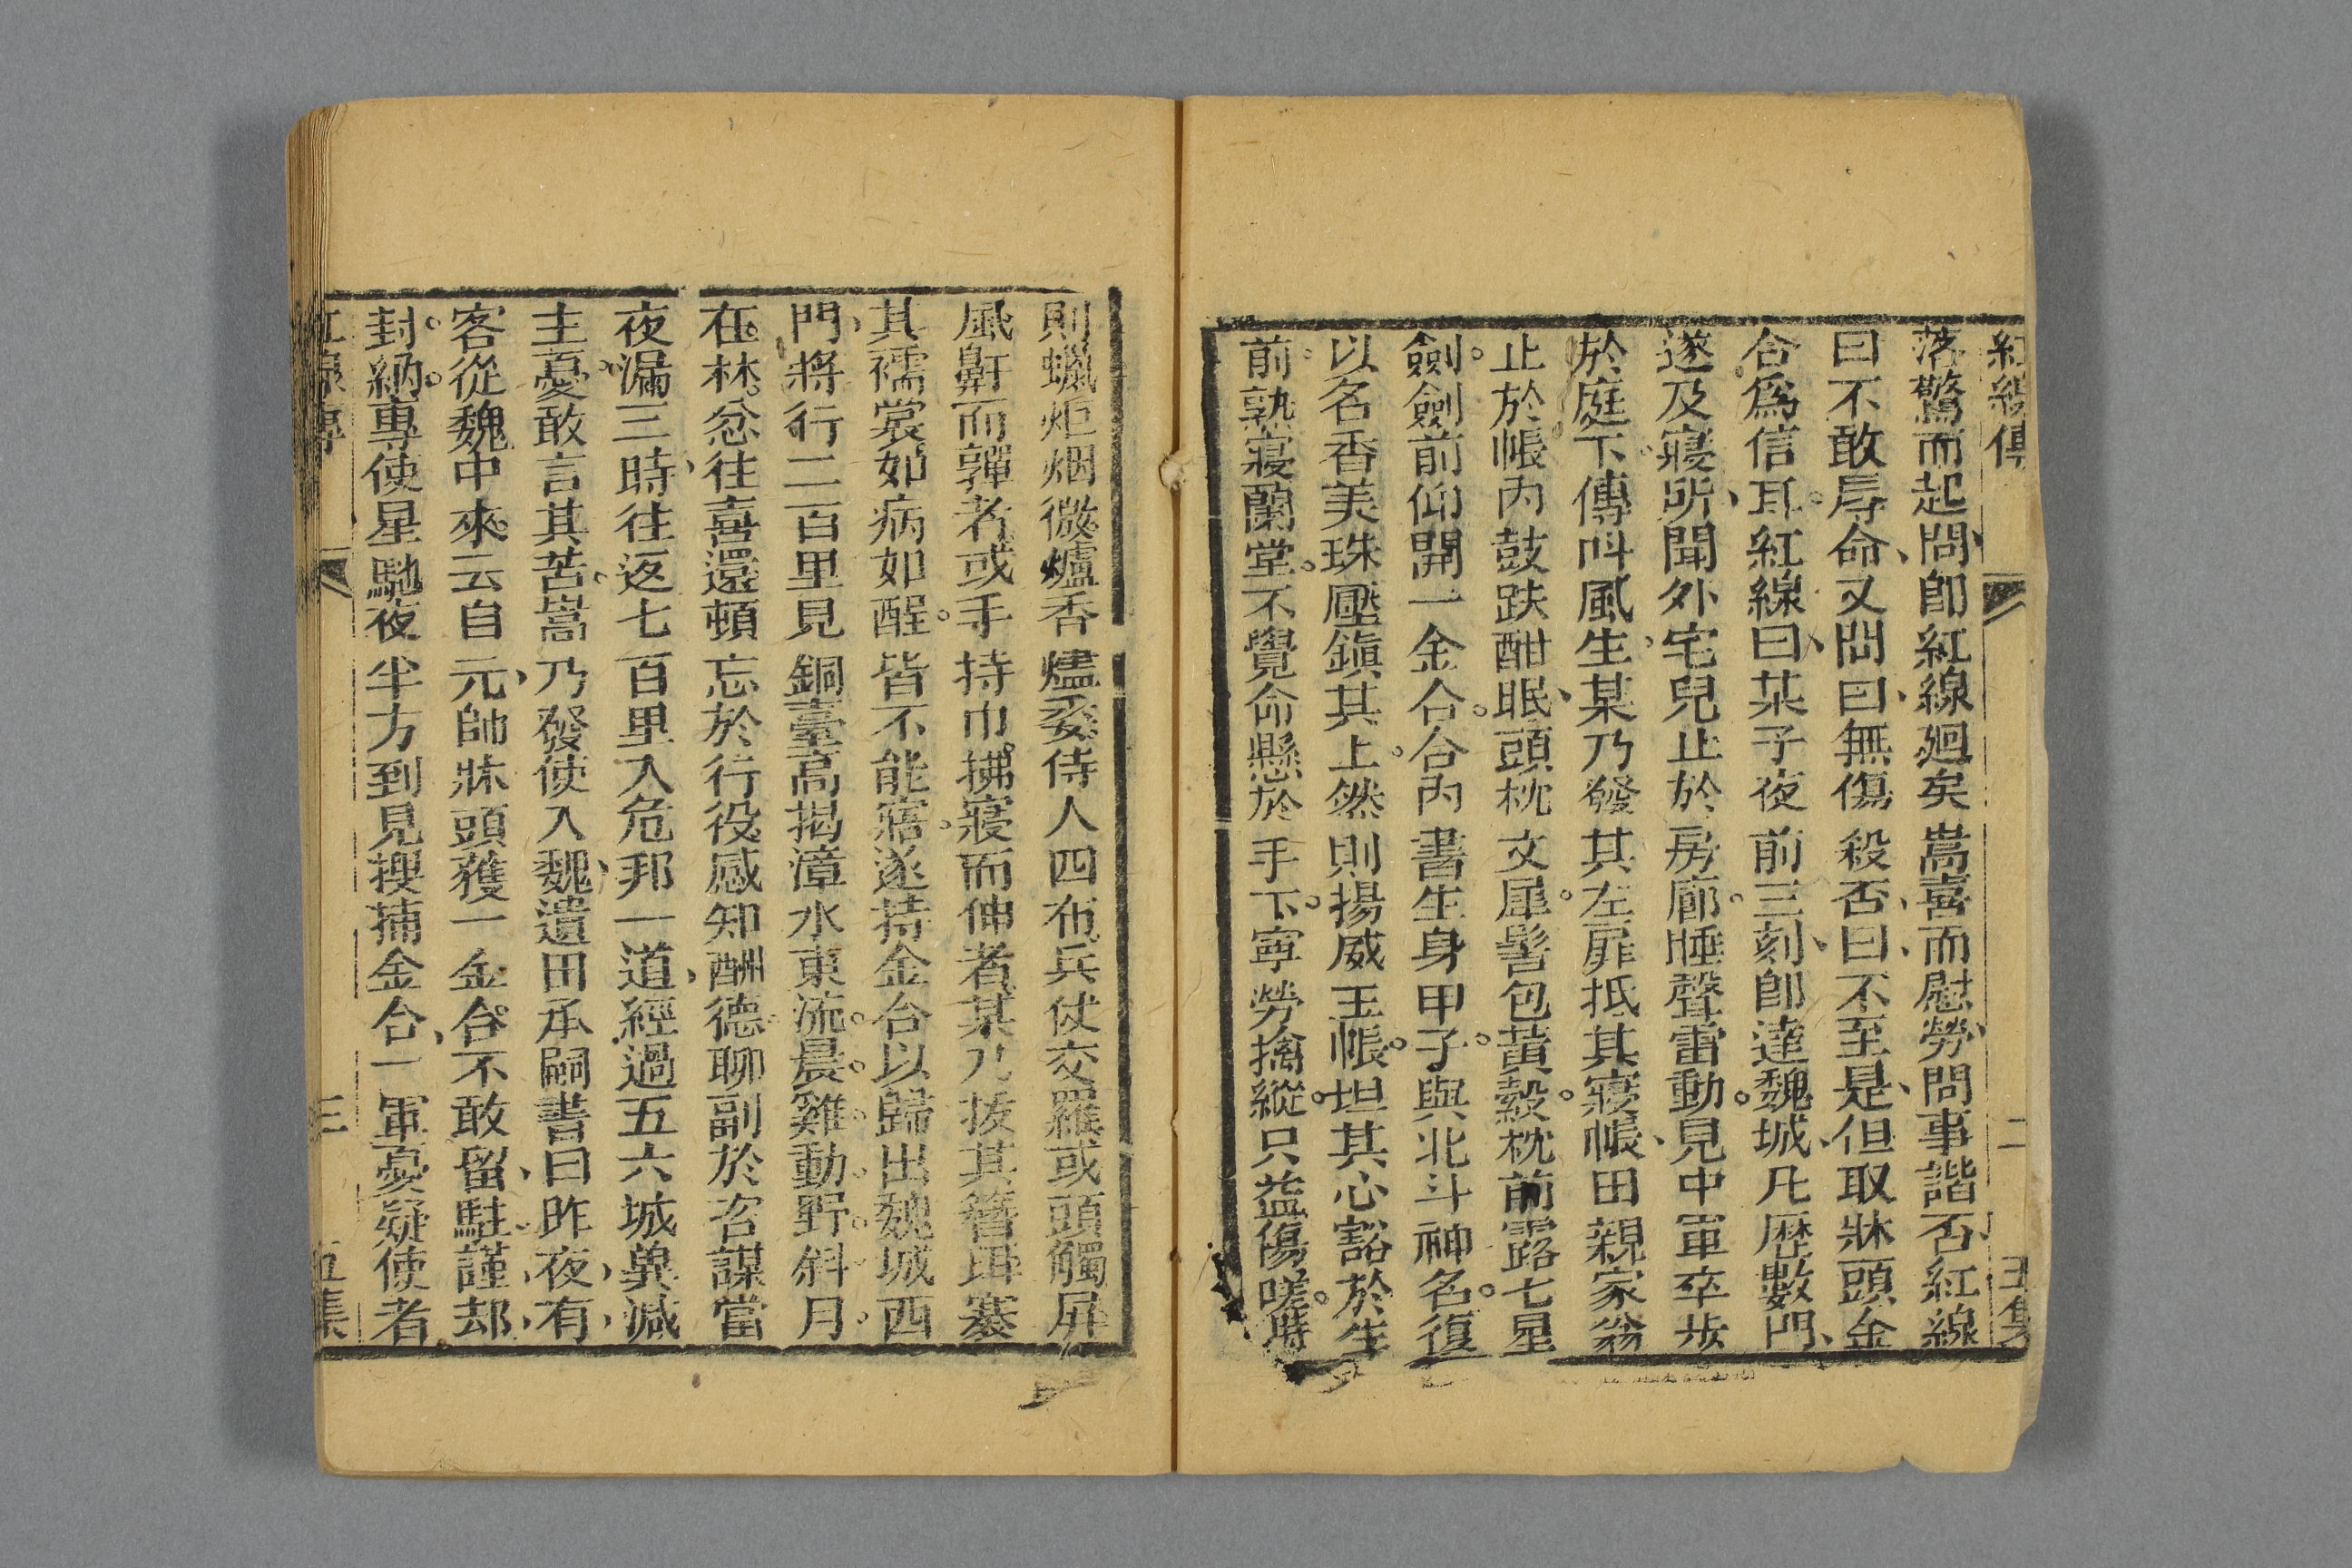 紅線傳 二 五集
落驚而起問卽紅線廻矣嵩喜而慰勞問事諧否紅線
曰不敢辱命又問曰無傷殺否曰不至是但取牀頭金
合爲信耳紅線曰某子夜前三刻卽達魏城凡歴數門
遂及寢所聞外宅兒止於房廊睡聲雷動見中軍卒步
於庭下傳呌風生某乃發其左扉抵其寢帳田親家翁
止於帳内鼓趺酣眠頭枕文犀髻包黃縠枕前露七星
劍劍前仰開一金合合内書生身甲子與北斗神名復
以名香美珠壓鎭其上然則揚威玉帳坦其心豁於生
前孰寢蘭堂不覺命懸於手下寧勞擒縱只益傷嗟時
則蠟炬烟微爐香燼委侍人四布兵仗交羅或頭觸屏
風鼾而嚲者或手持巾拂寢而伸者某乃拔其簪珥褰
其襦裳如病如酲皆不能寤遂持金合以歸出魏城西
門將行二百里見銅臺高揭漳水東流晨雞動野斜月
在林忿往喜還頓忘於行役感知酬德聊副於咨謀當
夜漏三時往返七百里入危邦一道經過五六城兾减
主憂敢言其苦嵩乃發使入魏遺田承嗣書曰昨夜有
客從魏中來云自元帥牀頭獲一金合不敢留駐謹却
封納專使星馳夜半方到見搜捕金合一軍憂疑使者
紅線傳 三 五集